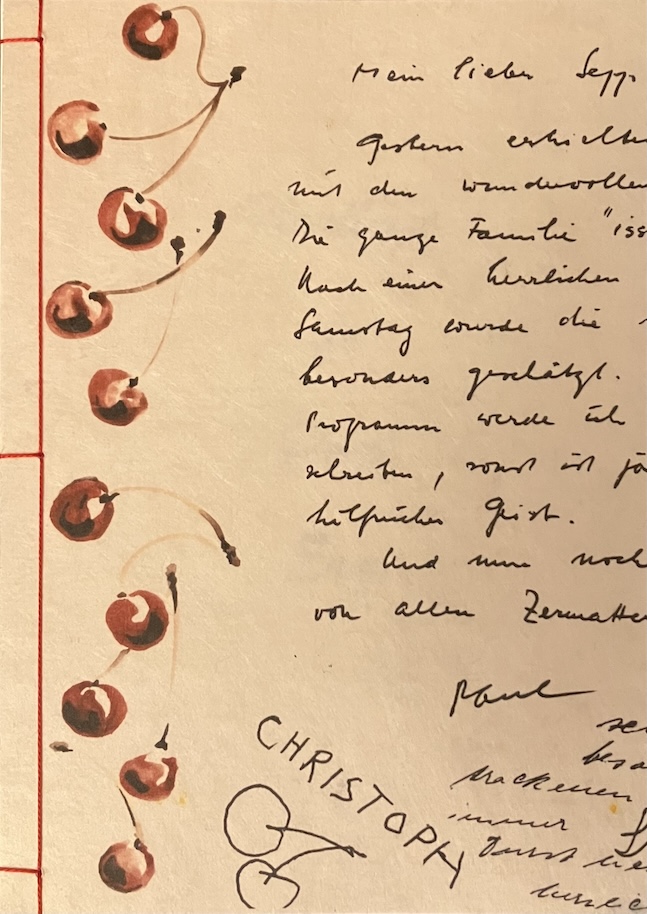 Mein lieber Sepp
Gestern erhielten
mit den wundervollen
Die ganze Familie "iss
Nach einer herrlichen
Samstag wurde die
besonders geschätzt.
Programm werde ich
schreiben, sonst ist
hilfreicher Geist.
Und nun noch
von allen Zermatter
Paul
CHRISTOPH
trockenen
immer
Durst